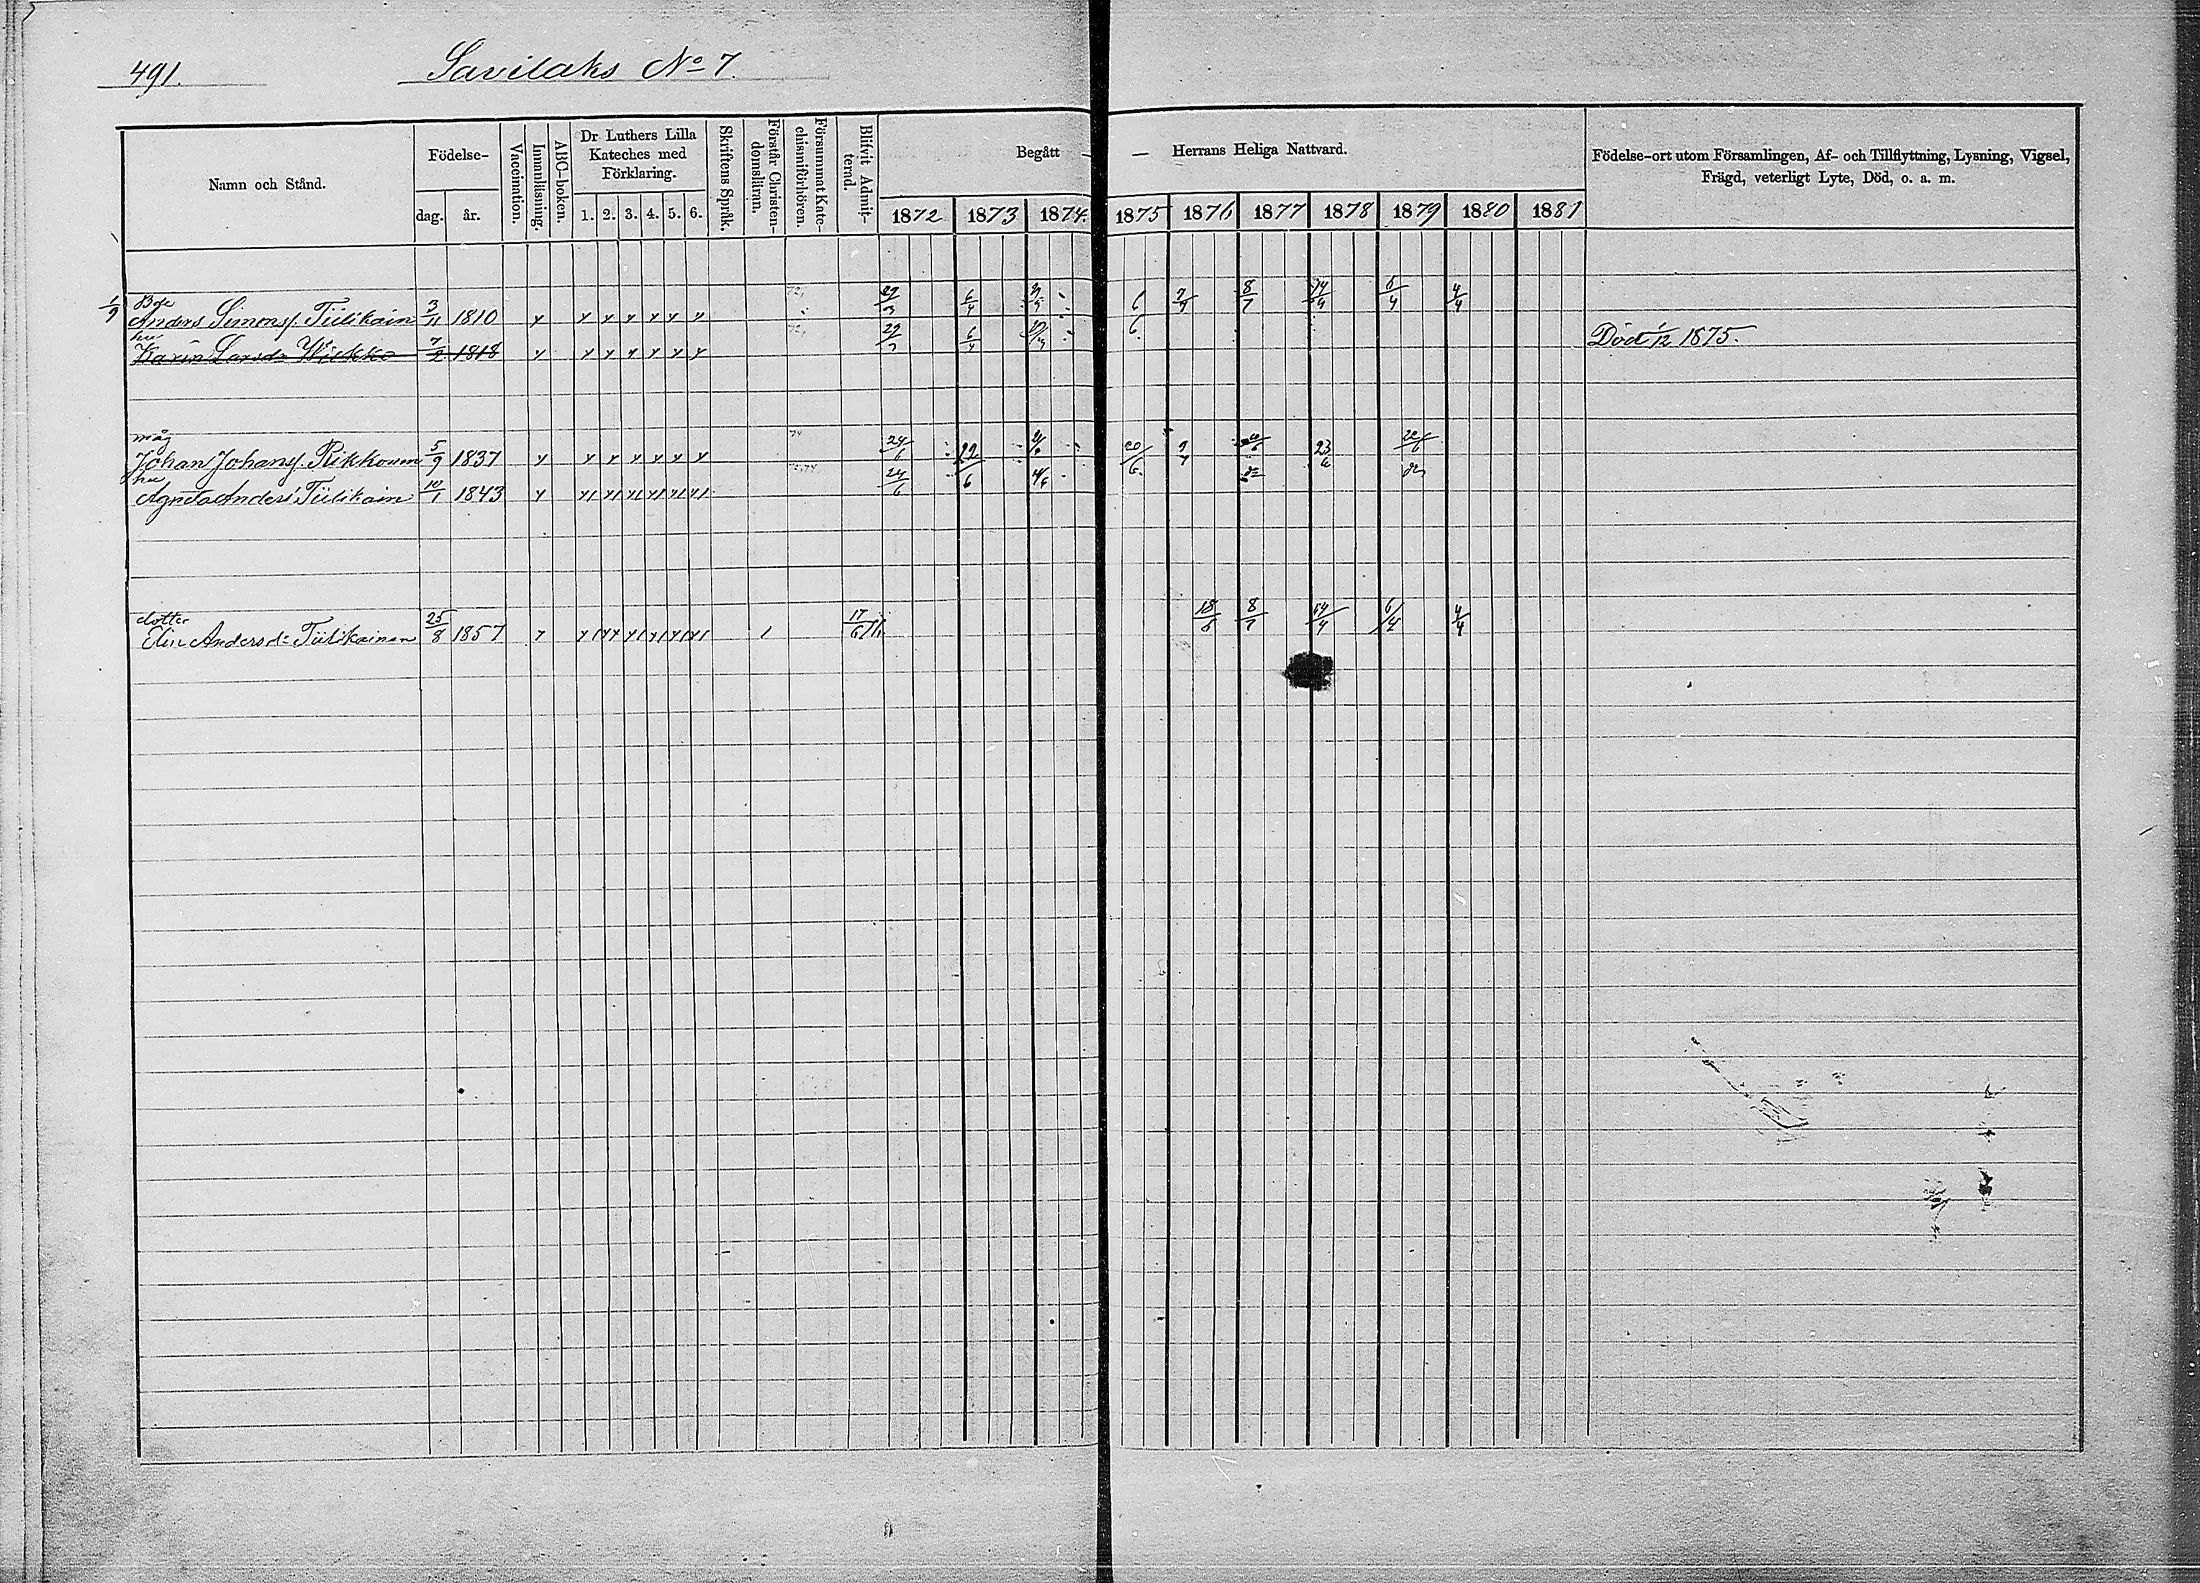 491.
Savilaks No 7.
Namn och Stånd.
Födelse-
dag.
år.
Vaccination.
Innanläsning.
ABC-boken.
Dr Luthers Lilla
Kateches med
Förklaring.
1. 2. 3. 4. 5. 6.
Skriftens Språk.
Förstår Christen-
domsläran.
Försummat Kate-
chismiförhören.
Blifvit Admit-
terad.
Begått — — Herrans Heliga Nattvard.
1872 1873 1874. 1875 1876 1877 1878 1879 1880 1881
Födelse-ort utom Församlingen, Af- och Tillflyttning, Lysning, Vigsel,
Frägd, veterligt Lyte, Död, o. a. m.
Anders Simonss. Tiilikain 3/11 1810 6/4 7/7 8/7 14/4 6/4 4/4
hu
Karin Larsdr Wirkko 7/2 1818 6/4 Död 1/12 1875.
måg
Johan Johanss. Rikkonen 5/9 1837 24/6 22 20/6 23
hu
Agneta Anders Tiilikain 10/1 1843 24/6 6
dotter
Elin Andersd:r Tiilikainen 25/8 1857 17/6 76 18/6 8/7 14/4 6/4 4/4